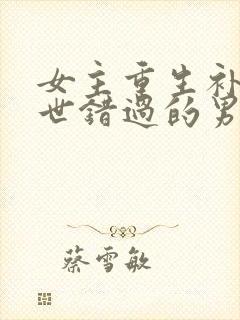 女主重生补
世错过的男
蔡雪敏